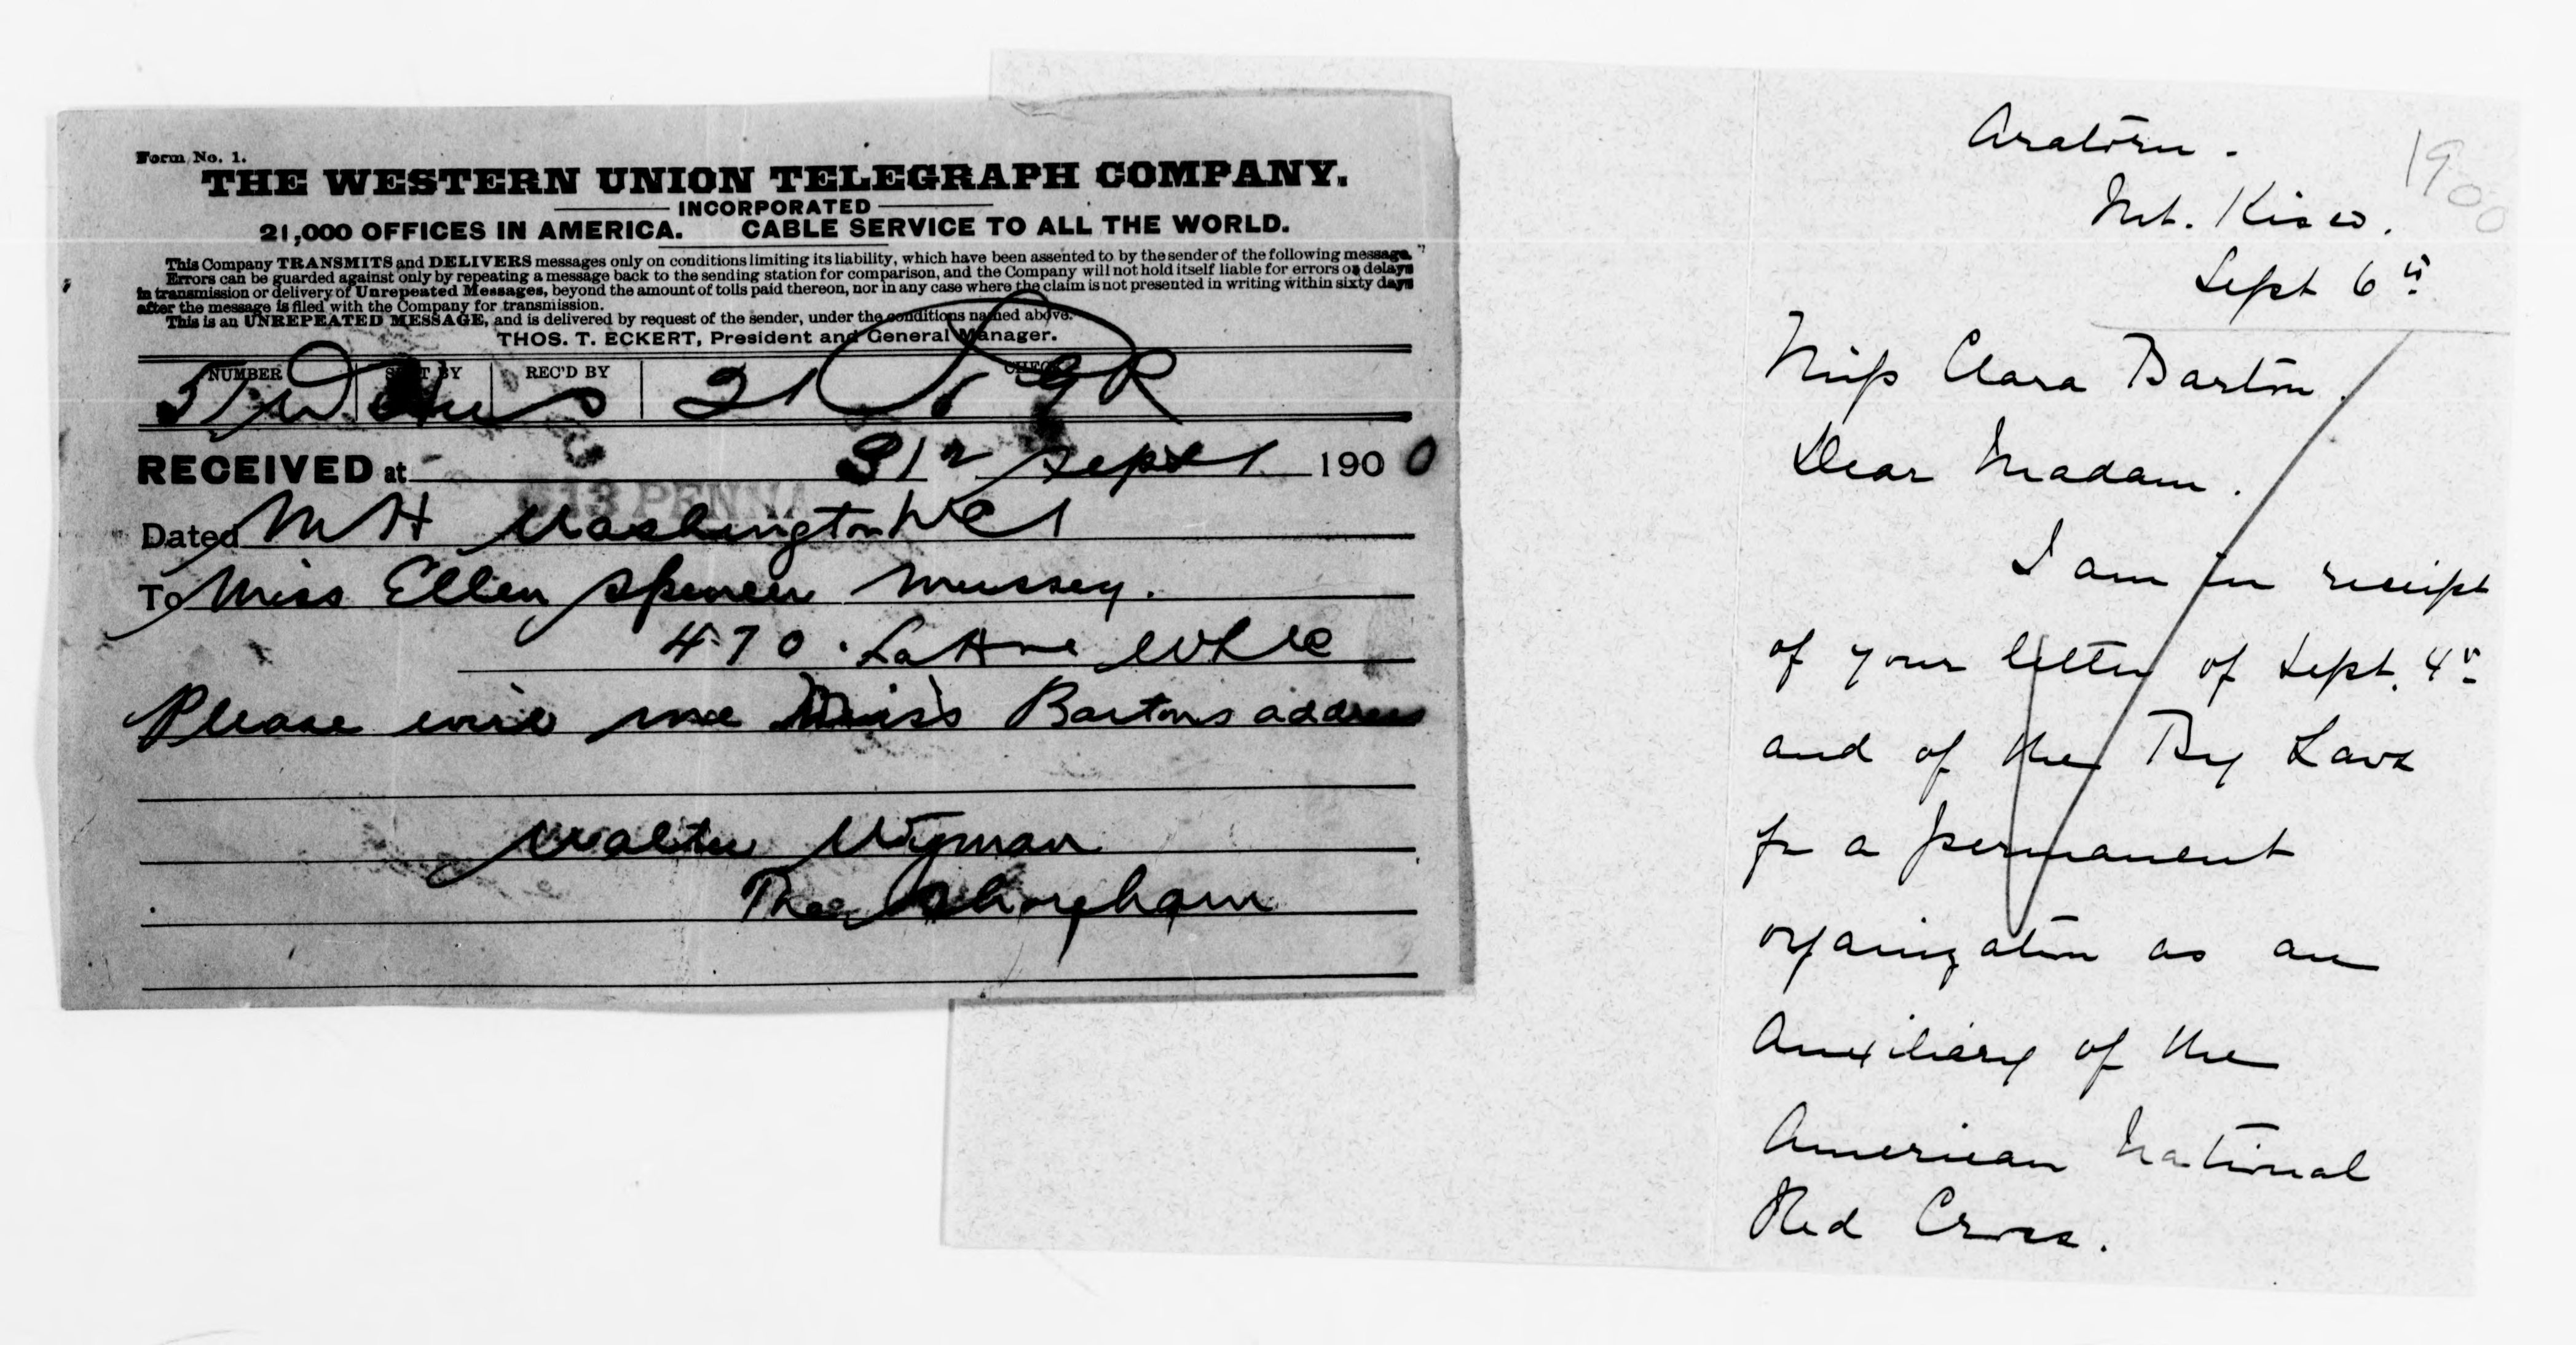 Form No. 1.
THE WESTERN UNION TELEGRAPH COMPANY.
INCORPORATED
21,000 OFFICES IN AMERICA. CABLE SERVICE TO ALL THE WORLD.
This Company TRANSMITS and DELIVERS messages only on conditions limiting its liability, which have been assented to by the sender of the following message.
Errors can be guarded against only by repeating a message back to the sending station for comparison, and the Company will not hold itself liable for errors or delays
in transmission or delivery of Unrepeated Messages, beyond the amount of tolls paid thereon, nor in any case where the claim is not presented in writing within sixty days
after the message is filed with the Company for transmission.
This is an UNREPEATED MESSAGE, and is delivered by request of the sender, under the conditions named above.
THOS. T. ECKERT, President and General Manager.
NUMBER SENT BY REC'D BY CHECK
21
RECEIVED at Sept 1900
513 PENNA
Dated MH Washington DC
To Miss Ellen Spencer Mussey.
470 La Ave
Please wire me Miss Bartons address
Walter Wyman
The Shoreham
Mt. Kisco. 1900
Sept 6th
Miss Clara Barton.
Dear Madam.
I am in receipt
of your letter of Sept. 4th
and of the By Laws
for a permanent
organization as an
Auxiliary of the
American National
Red Cross.